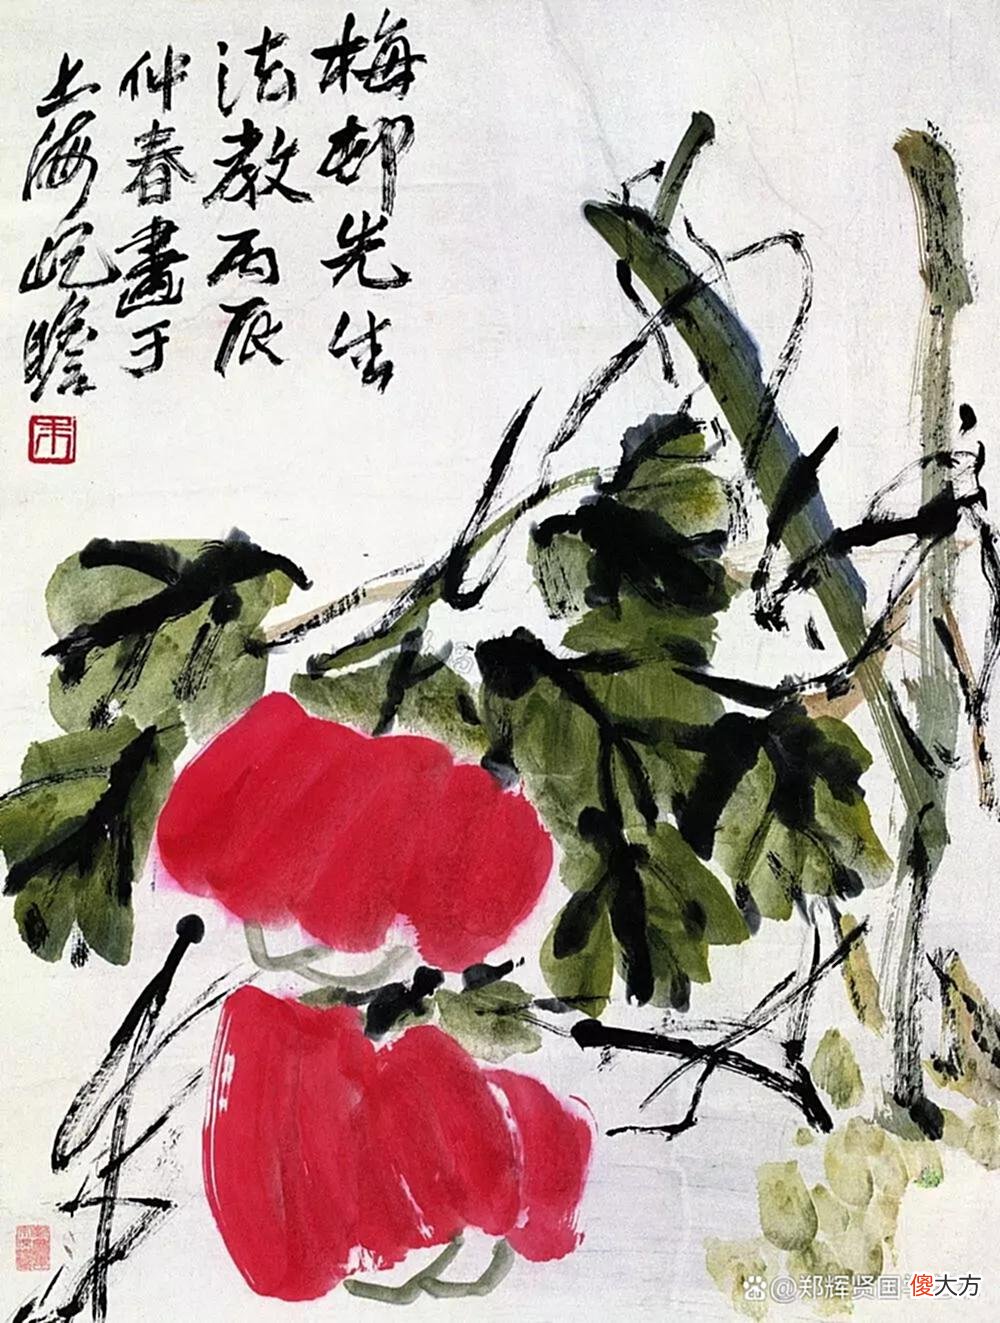 梅邨先生
法教丙辰
仲春畫于
上海屺瞻
朱
@郑辉贤国
傻大方